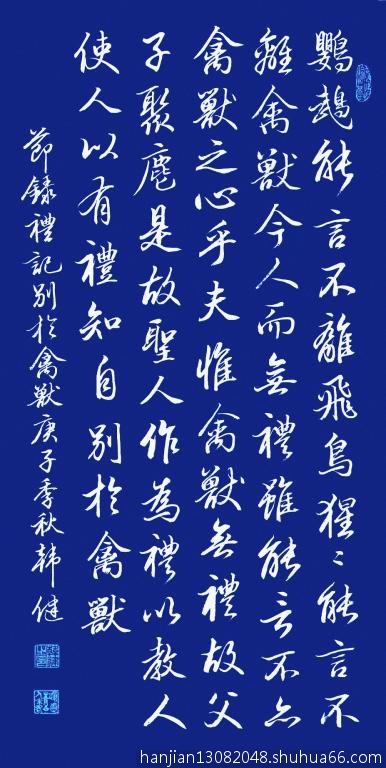 鸚鵡能言不離飛鳥猩〻能言不
離禽獸今人而無禮雖能言不亦
禽獸之心乎夫惟禽獸無禮故父
子聚麀是故聖人作為禮以教人
使人以有禮知自別於禽獸
節錄禮記別於禽獸庚子季秋韓健
hanjian13082048.shuhua66.com